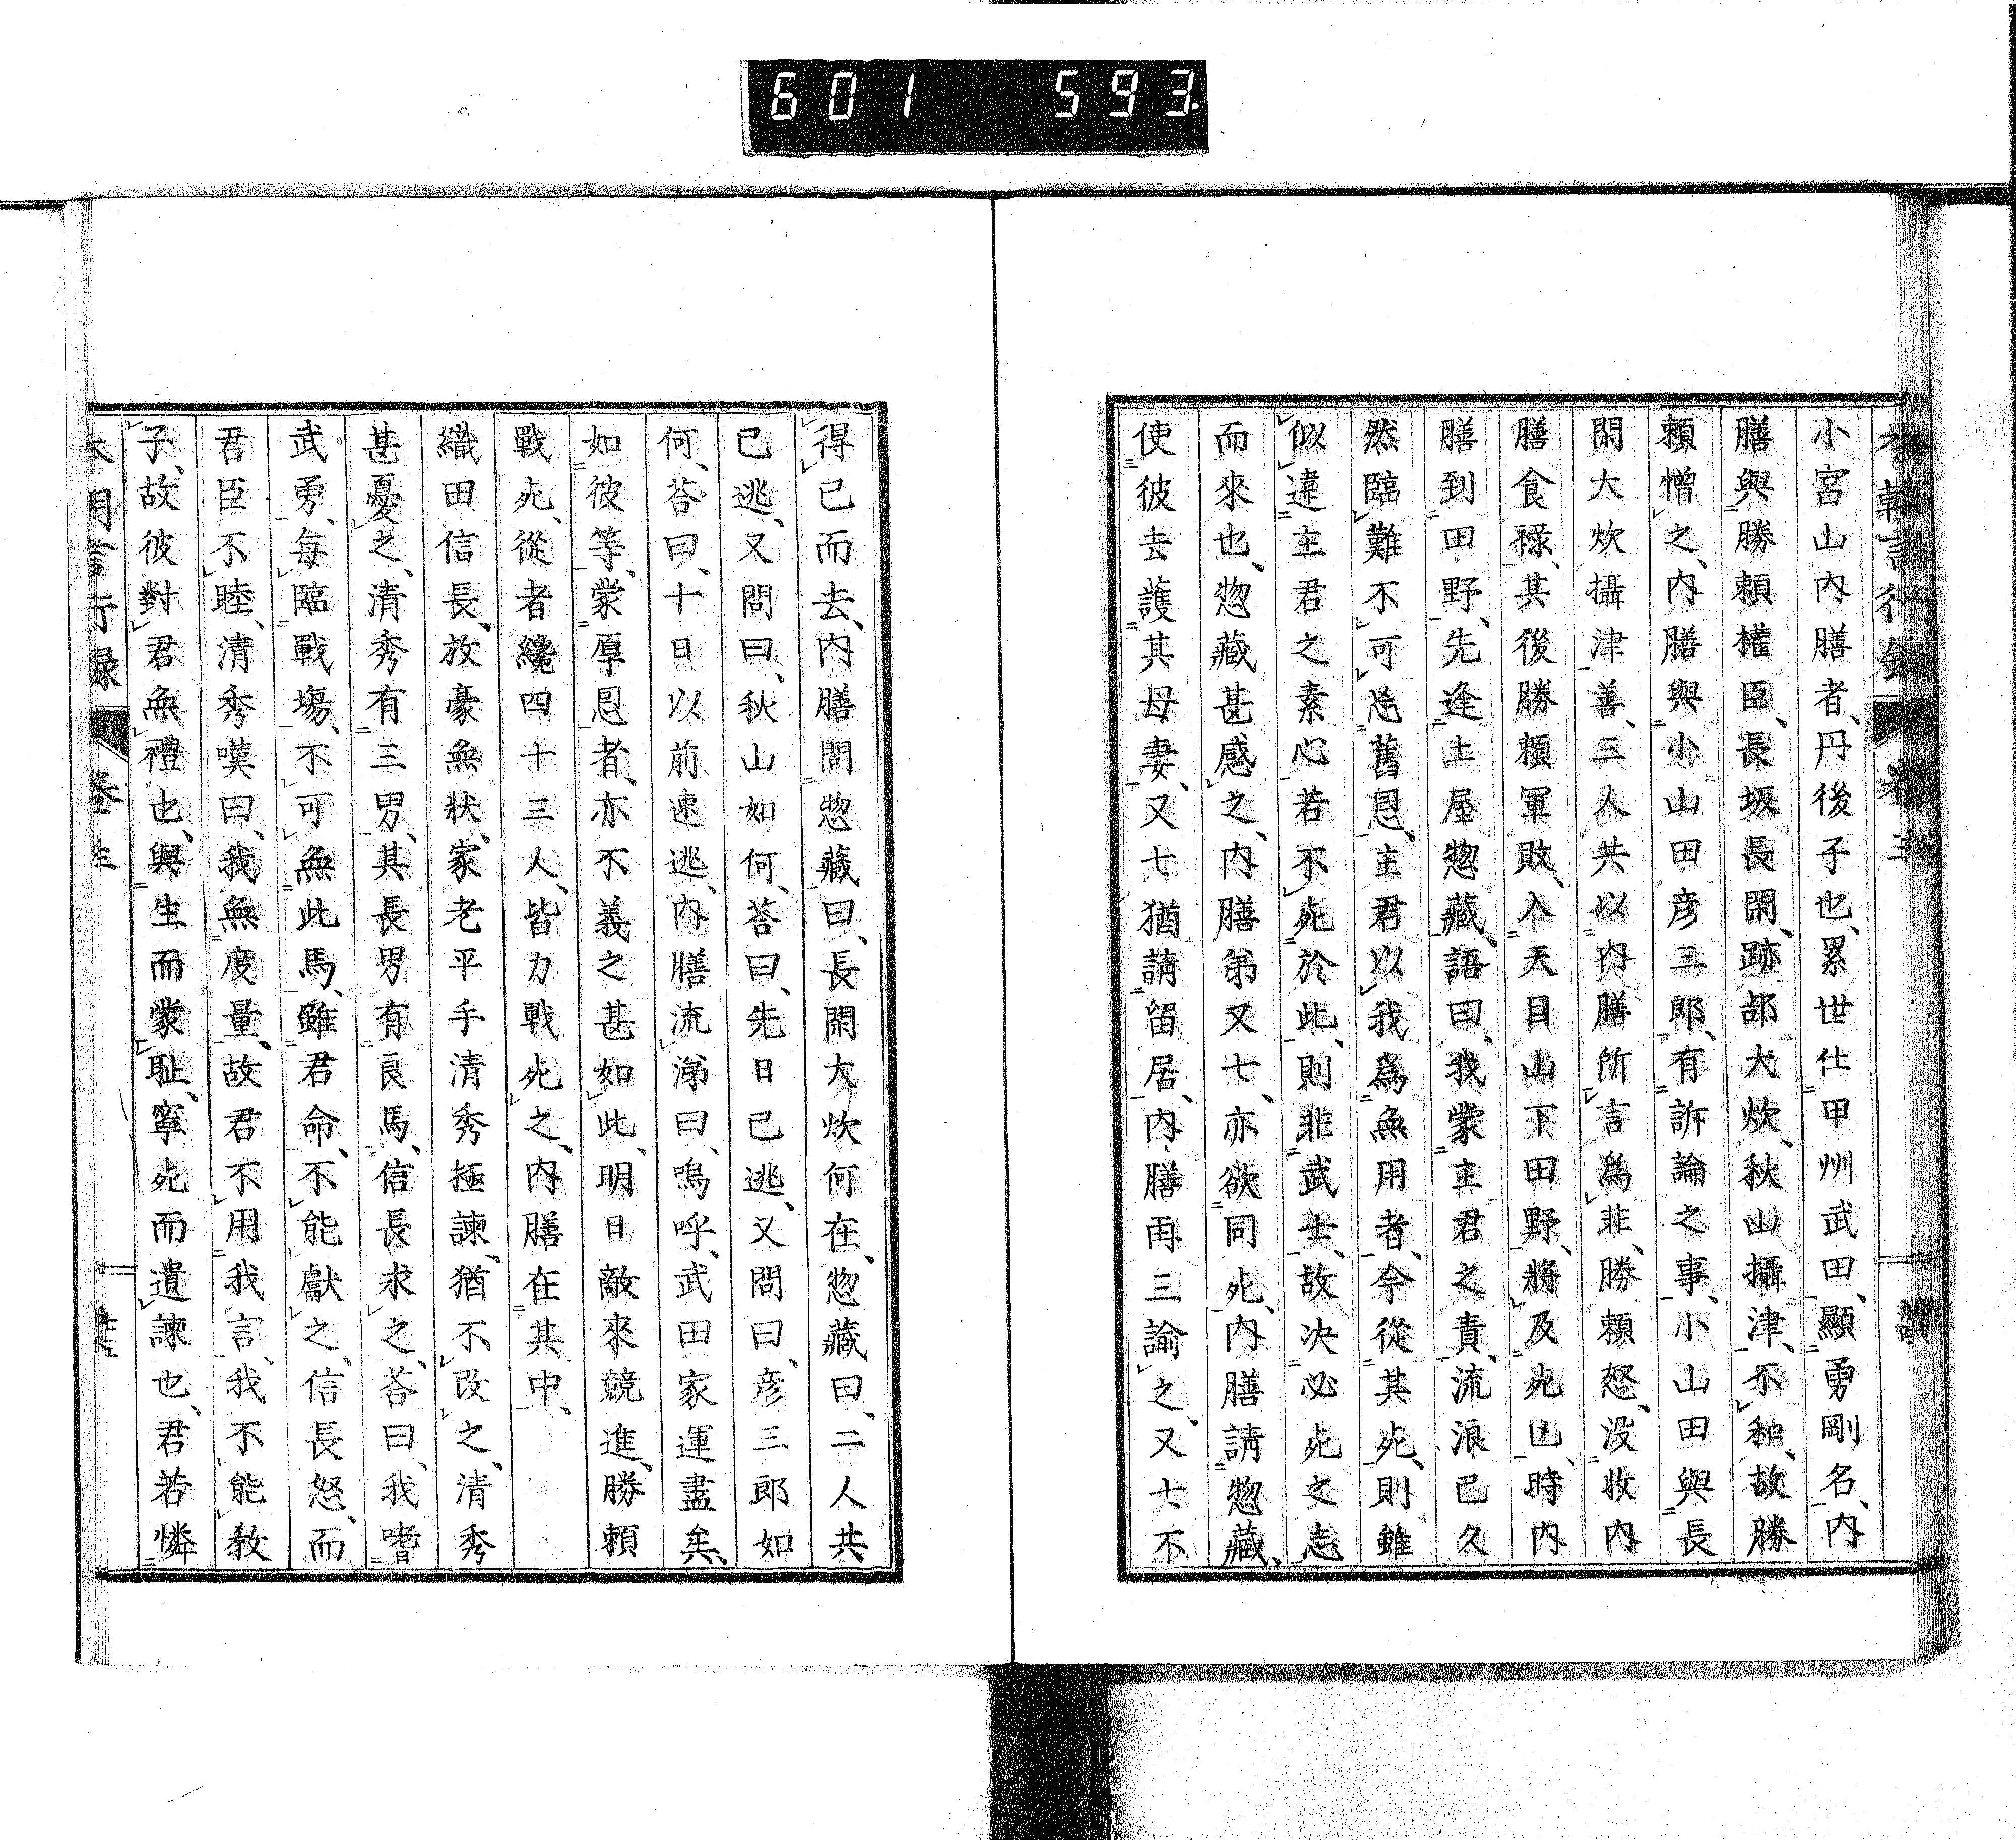 601 593.
小宮山內膳者、丹後子也、累世仕甲州武田、顯勇剛名、內
膳與勝頼權臣、長坂長閑、跡部大炊、秋山攝津、不和、故勝
頼憎之、內膳與小山田彦三郎、有訴論之事、小山田與長
閑大炊攝津善、三人共以內膳所言為非、勝頼怒、没收內
膳食祿、其後勝頼軍敗、入天目山下田野、將及死亡、時內
膳到田野、先逢土屋惣藏、語曰、我蒙主君之責、流浪已久
然臨難不可忘舊恩、主君以我爲無用者、今從其死、則雖
似違主君之素心、若不死於此、則非武士、故决必死之志
而來也、惣藏甚感之、內膳弟又七、亦欲同死、內膳請惣藏、
使彼去護其母妻、又七猶請留居、內膳再三諭之、又七不
得已而去、內膳問惣藏曰、長閑大炊何在、惣藏曰、二人共
已逃、又問曰、秋山如何、荅曰、先日已逃、又問曰、彦三郎如
何、荅曰、十日以前速逃、內膳流涕曰、鳴呼、武田家運盡矣、
如彼等、蒙厚恩者、亦不義之甚如此、明日敵來競進、勝頼
戰死、從者纔四十三人、皆力戰死之、內膳在其中、
織田信長、放豪無狀、家老平手清秀極諫、猶不改之、清秀
甚憂之、清秀有三男、其長男有良馬、信長求之、荅曰、我嗜
武勇、每臨戰場、不可無此馬、雖君命、不能獻之、信長怒、而
君臣不睦、清秀嘆曰、我無度量、故君不用我言、我不能教
子、故彼對君無禮也、與生而蒙耻、寧死而遺諫也、君若憐